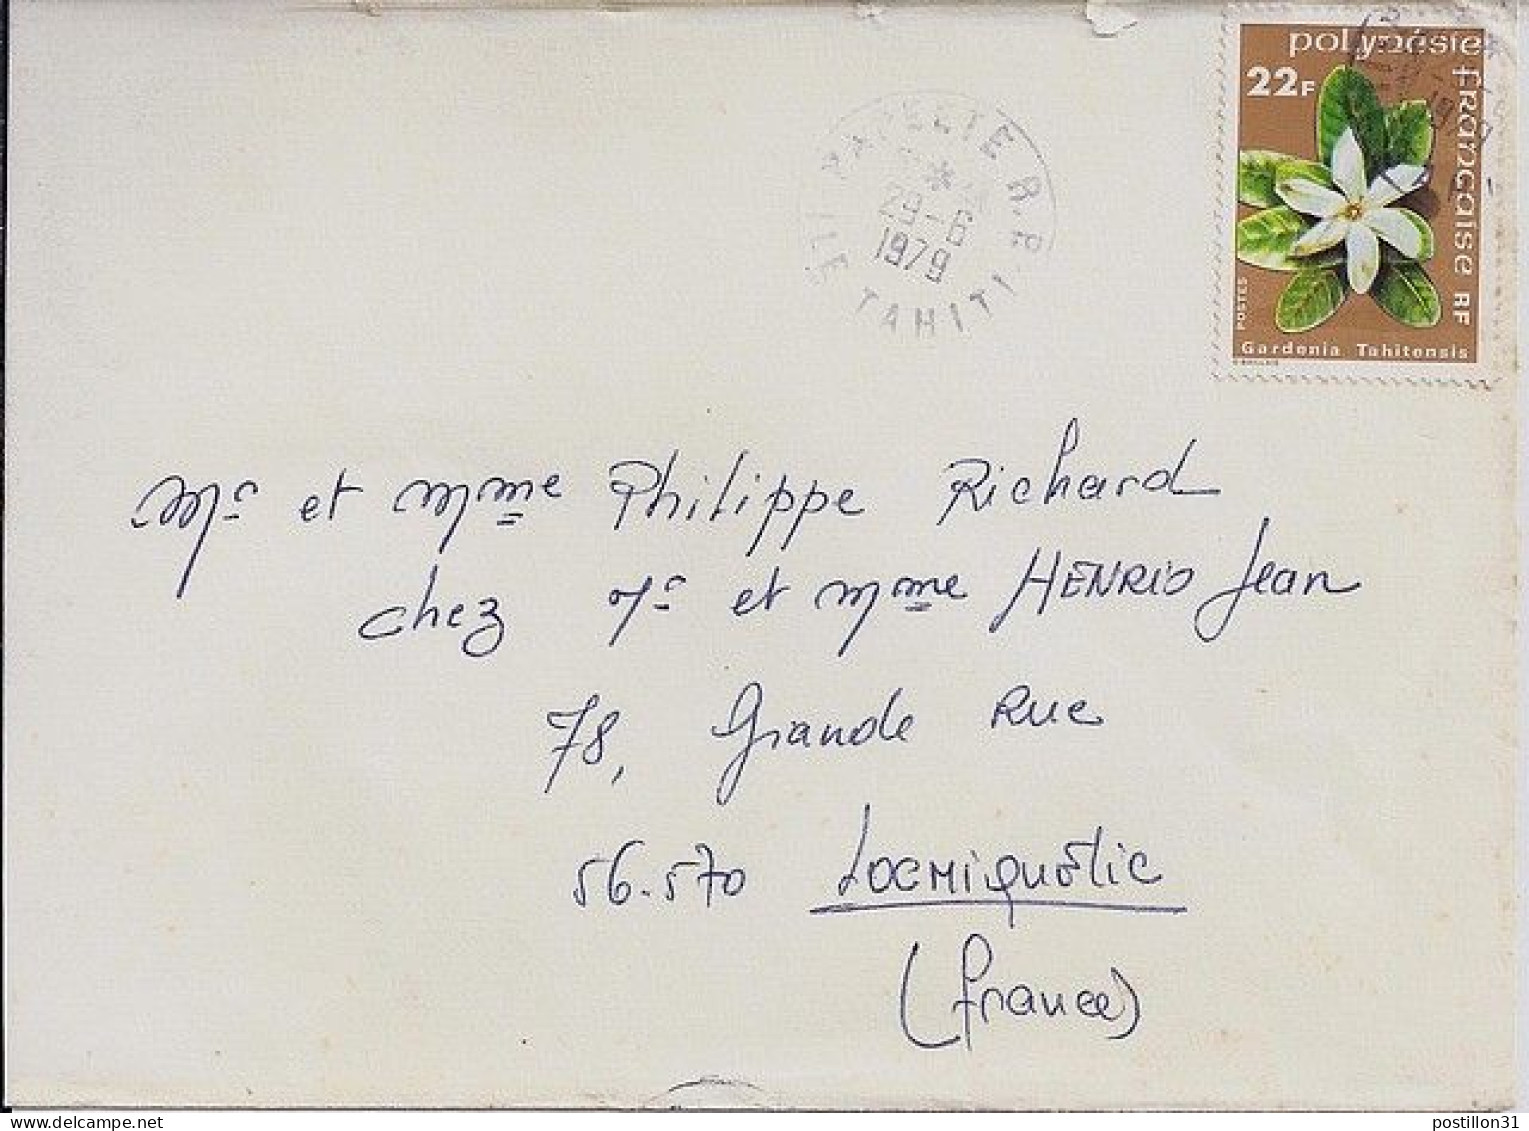 polynésie
française RF
22F
POSTES
Gardenia Tahitensis
PAPEETE R.P.
29-6
1979
ILE TAHITI
Mr et Mme Philippe Richard
chez Mr et Mme HENRIO Jean
78, Grande Rue
56.570 Locmiquélic
(France)
postillon31